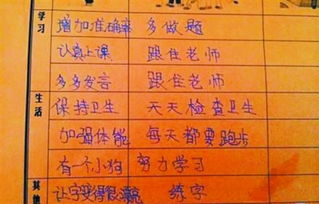 学习
增加准确率 多做题
认真上课 跟住老师
多多发言 跟住老师
生活
保持卫生 天天检查卫生
加强体能 每天都要跑步
有一个小狗 努力学习
其他
让字变得很漂亮 练字